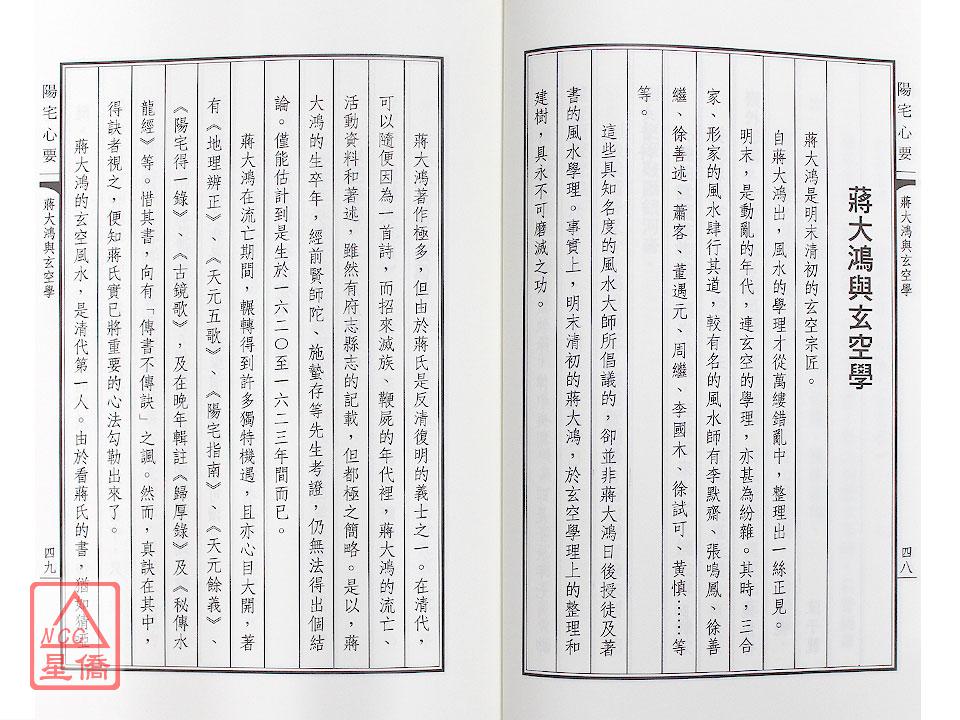 陽宅心要
蔣大鴻與玄空學
四八
蔣大鴻與玄空學
蔣大鴻是明末清初的玄空宗匠。
自蔣大鴻出，風水的學理才從萬縷錯亂中，整理出一絲正見。
明末，是動亂的年代，連玄空的學理，亦甚為紛雜。其時，三合
家、形家的風水肆行其道，較有名的風水師有李默齋、張鳴鳳、徐善
繼、徐善述、蕭客、董遇元、周繼、李國木、徐試可、黃慎……等
等。
這些具知名度的風水大師所倡議的，卻並非蔣大鴻日後授徒及著
書的風水學理。事實上，明末清初的蔣大鴻，於玄空學理上的整理和
建樹，具永不可磨滅之功。
蔣大鴻著作極多，但由於蔣氏是反清復明的義士之一。在清代，
可以隨便因為一首詩，而招來滅族、鞭屍的年代裡，蔣大鴻的流亡、
活動資料和著述，雖然有府志縣志的記載，但都極之簡略。是以，蔣
大鴻的生卒年，經前賢師陀、施蟄存等先生考證，仍無法得出個結
論。僅能估計到是生於一六二〇至一六二三年間而已。
蔣大鴻在流亡期間，輾轉得到許多獨特機遇，且亦心目大開，著
有《地理辨正》、《天元五歌》、《陽宅指南》、《天元餘義》、
《陽宅得一錄》、《古鏡歌》，及在晚年輯註《歸厚錄》及《秘傳水
龍經》等。惜其書，向有「傳書不傳訣」之諷。然而，真訣在其中，
得訣者視之，便知蔣氏實已將重要的心法勾勒出來了。
蔣大鴻的玄空風水，是清代第一人。由於看蔣氏的書，猶如猜
陽宅心要
蔣大鴻與玄空學
四九
NCC
星僑